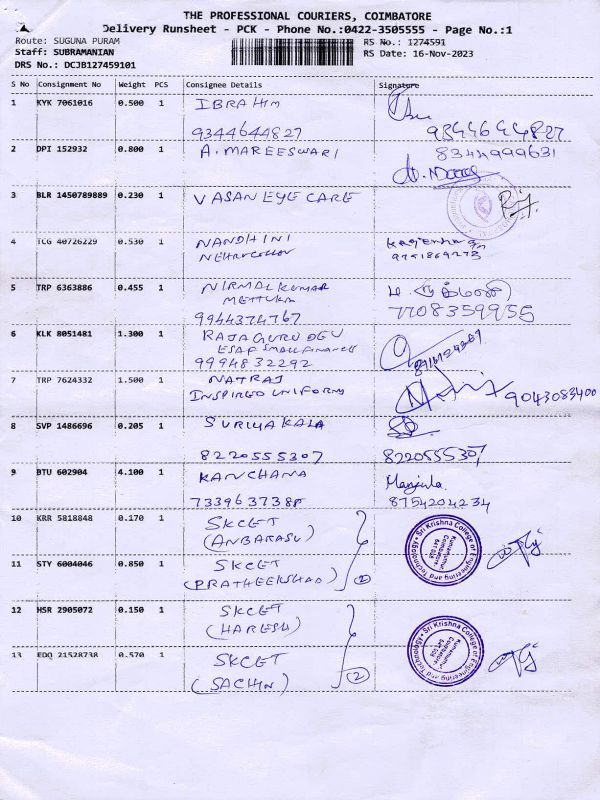 THE PROFESSIONAL COURIERS, COIMBATORE
Delivery Runsheet - PCK - Phone No.:0422-3505555 - Page No.:1
Route: SUGUNA PURAM
RS No.: 1274591
Staff: SUBRAMANIAN
RS Date: 16-Nov-2023
DRS No.: DCJB127459101
S No Consignment No Weight PCS Consignee Details Signature
1 KYK 7061016 0.500 1 IBRAHIM
9344644827 9344644827
2 DPI 152932 0.800 1 A. MAREESWARI 8344999631
3 BLR 1450789889 0.230 1 VASAN EYE CARE
4 TCG 40726229 0.530 1 NANDHINI
9791869273
5 TRP 6363886 0.455 1 NIRMAL KUMAR
METTUKA
9944374767 7708359955
6 KLK 8051481 1.300 1 RAJAGURU DEV
ESAF SMALL FINANCE
9994832292
7 TRP 7624332 1.500 1 NATRAJ
INSPIREO UNIFORM 9043083400
8 SVP 1486696 0.205 1 SURIYA KALA
8220555307 8220555307
9 BTU 602904 4.100 1 KANCHANA Manjula
8754204234
10 KRR 5818848 0.170 1 SKCET
(ANBARASU)
Sri Krishna College of Engineering and Technology
Kuniamuthur
Coimbatore
641 008
11 STY 6004046 0.850 1 SKCET
2
12 HSR 2905072 0.150 1 SKCET
(HARESH)
Sri Krishna College of Engineering and Technology
Kuniamuthur
Coimbatore
641 008
13 EDQ 21528738 0.570 1 SKCET
(SACHIN) 2